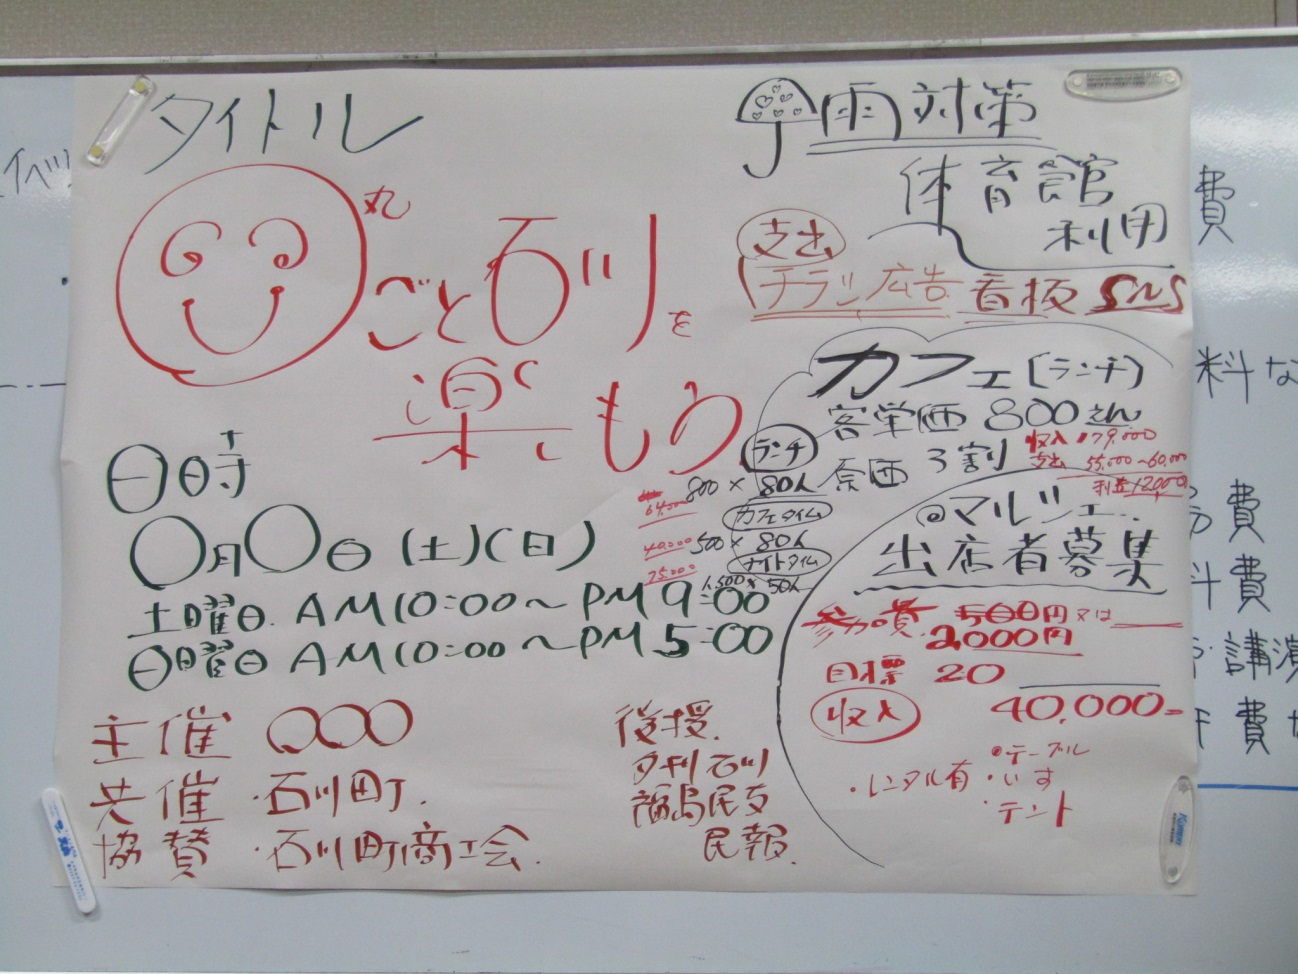 タイトル
丸
ごと石川を
楽しくもう
日時
〇月〇日(土)(日)
土曜日 AM10:00～PM9:00
日曜日 AM10:00～PM5:00
主催 〇〇〇
共催・石川町
協賛・石川町商工会
後援
夕刊石川
福島民友
民報
雨対策
体育館
利用
支出
チラシ広告 看板 SNS
カフェ(ランチ)
客単価 800えん
原価 3割
収入 179,000
支出 55,000~60,000
利益 120,000
ランチ
800×80人
64,000
カフェタイム
40,000 500×80人
ナイトタイム
75,000 1,500×50人
@マルシェ
出店者募集
参加費 500円又は
2000円
目標 20
収入 40,000-
・レンタル有
・テーブル
・いす
・テント
イベン
費
料な
費
費
講演
費